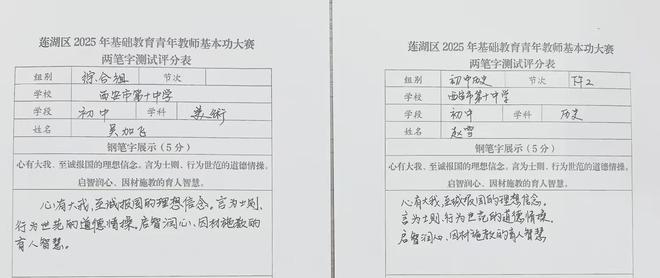 莲湖区 2025 年基础教育青年教师基本功大赛
两笔字测试评分表
组别 综合组 节次
学校 西安市第十中学
学段 初中 学科 美术
姓名 吴加飞
钢笔字展示(5 分)
心有大我、至诚报国的理想信念。言为士则、行为世范的道德情操。
启智润心、因材施教的育人智慧。
心有大我,至诚报国的理想信念。言为士则,
行为世范的道德情操。启智润心、因材施教的
育人智慧。
莲湖区 2025 年基础教育青年教师基本功大赛
两笔字测试评分表
组别 初中历史 节次 下午2
学校 西安市第十中学
学段 初中 学科 历史
姓名 赵雪
钢笔字展示(5 分)
心有大我、至诚报国的理想信念。言为士则、行为世范的道德情操。
启智润心、因材施教的育人智慧。
心有大我,至诚报国的理想信念。
言为士则,行为世范的道德情操。
启智润心、因材施教的育人智慧